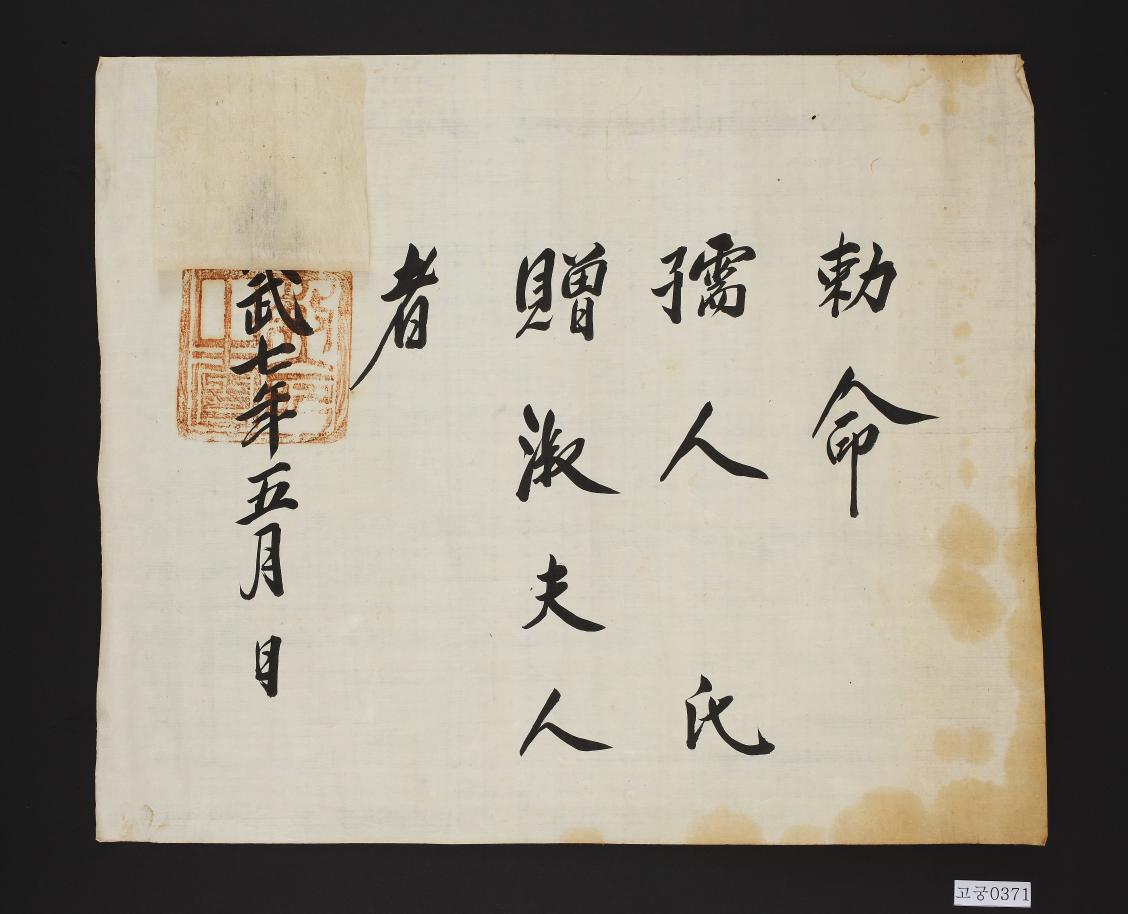 勅命
孺人 氏
贈淑夫人
者
武七年五月 日
고궁0371